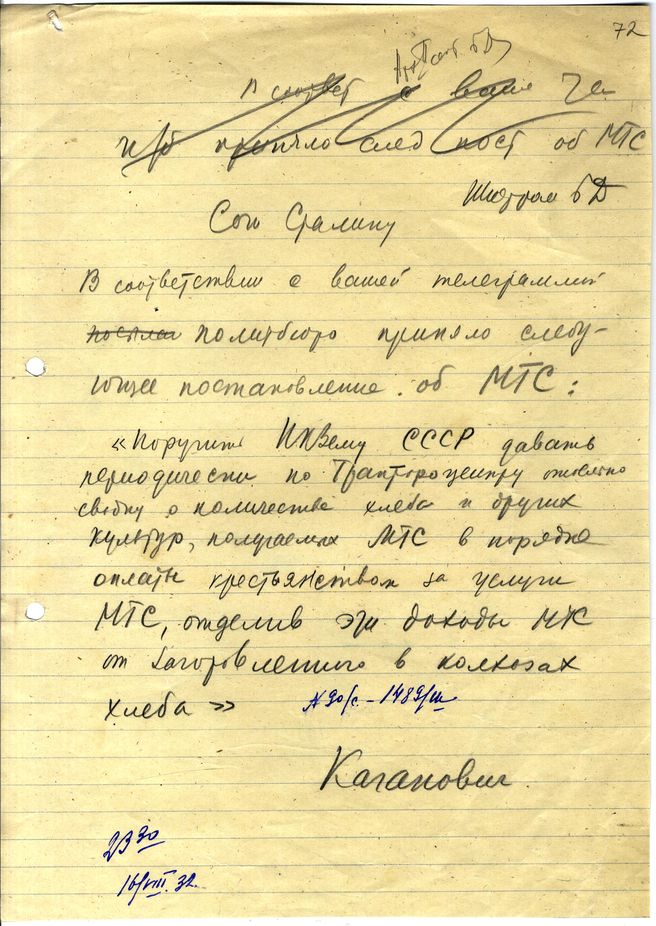 72
В соответ с ваше
п/б приняло след пост об МТС
Шифром БД
Сочи Сталину
В соответствии с вашей телеграммой
посылаю политбюро приняло следу-
ющее постановление об МТС:
«Поручить НКЗему СССР давать
периодически по Трактороцентру
сводку о количестве хлеба и других
культур, получаемых МТС в порядке
оплаты крестьянством за услуги
МТС, отделив эти доходы МТС
от заготовленного в колхозах
хлеба»
N 90/с - 1489/ш
Каганович
23 30
16/VIII.32.